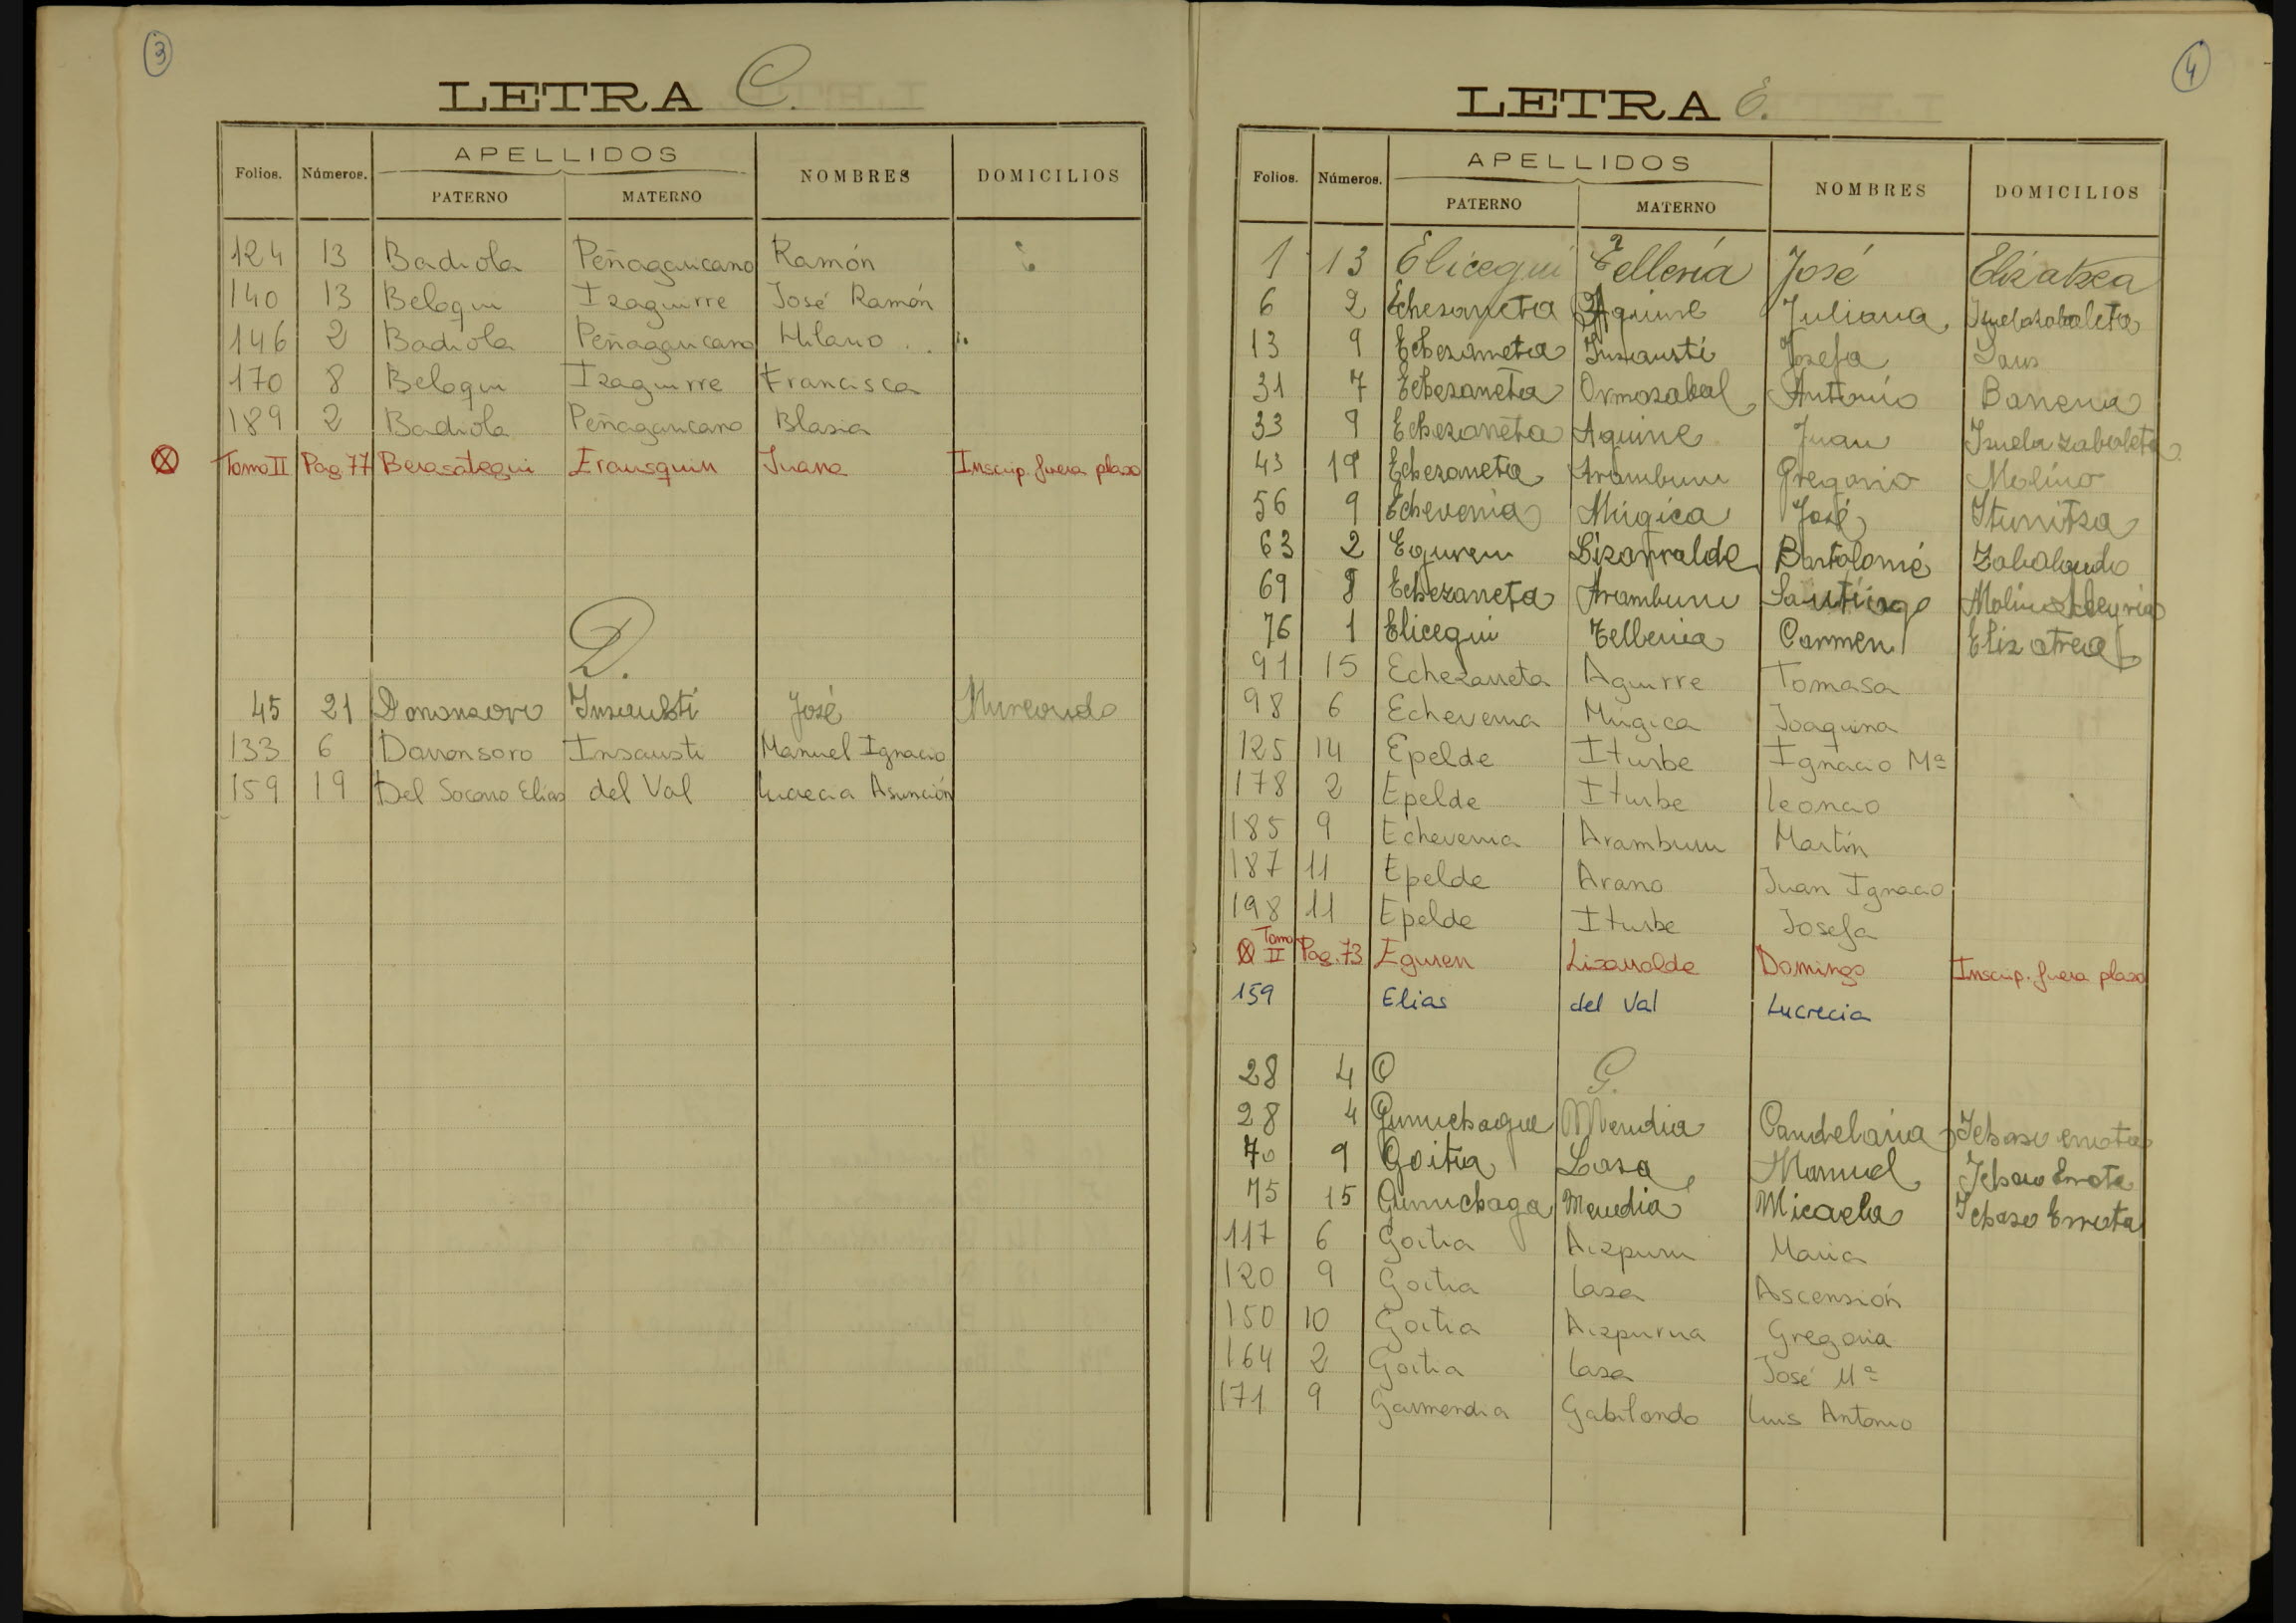 3
LETRA C.
Folios. Números. APELLIDOS NOMBRES DOMICILIOS
PATERNO MATERNO
124 13 Badiola Peñagaricano Ramón
140 13 Beloqui Izaguirre José Ramón
146 2 Badiola Peñagaricano Hilario
170 8 Beloqui Izaguirre Francisca
189 2 Badiola Peñagaricano Blasia
Tomo II Pag 77 Berasategui Erausquin Juana Inscrip. fuera plazo
D.
45 21 Dononsoro Insausti José Mureondo
133 6 Dorronsoro Insausti Manuel Ignacio
159 19 Del Socorro Elias del Val Lucrecia Asunción
4
LETRA E.
Folios. Números. APELLIDOS NOMBRES DOMICILIOS
PATERNO MATERNO
1 13 Elicegui Tellería José Elizatxea
6 2 Echezarreta Aguirre Juliana
13 9 Echezarreta Insausti Josefa
31 7 Echezarreta Ormazabal Antonio Barrena
33 9 Echezarreta Aguirre Juan
43 19 Echezarreta Aramburu Gregorio Molino
56 9 Echeverria Múgica José Iturritza
63 2 Eguren Lizarralde Bartolomé Zabalondo
69 8 Echezarreta Aramburu Santiago Molino
76 1 Elicegui Telleria Carmen
91 15 Echezarreta Aguirre Tomasa
98 6 Echeverria Múgica Joaquina
125 14 Epelde Iturbe Ignacio Mª
178 2 Epelde Iturbe Leoncio
185 9 Echeverria Aramburu Martín
187 11 Epelde Arano Juan Ignacio
198 11 Epelde Iturbe Josefa
Tomo II Pag. 73 Eguren Lizarralde Domingo Inscrip. fuera plazo
159 Elias del Val Lucrecia
28 4 G.
28 4 Gurruchaga Mendia Candelaria Ichaso errota
70 9 Goitia Lasa Manuel Ichaso Errota
75 15 Gurruchaga Mendia Micaela Ichaso Errota
117 6 Goitia Aizpuru Maria
120 9 Goitia Lasa Ascensión
150 10 Goitia Aizpurua Gregoria
164 2 Goitia Lasa José Mª
171 9 Garmendia Gabilondo Luis Antonio